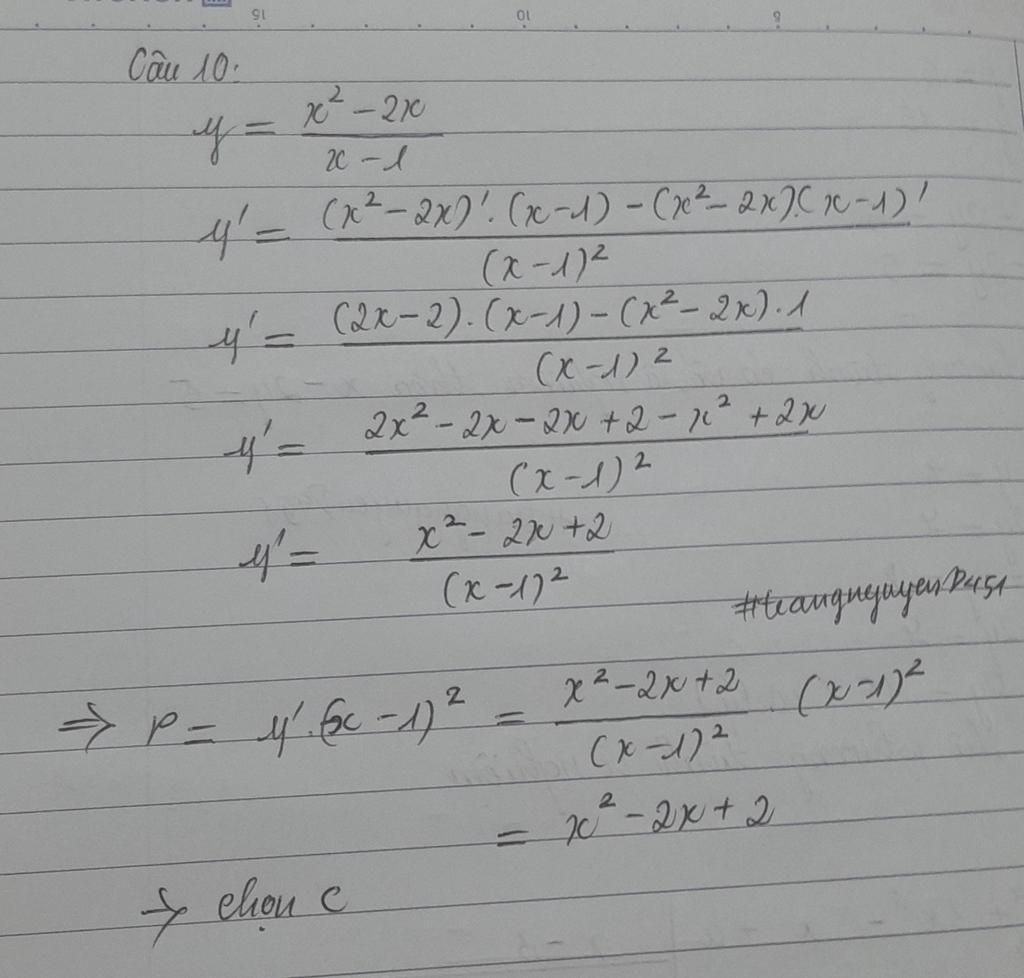 15 10 8
Câu 10:
y = (x² - 2x) / (x - 1)
y' = ((x² - 2x)'.(x - 1) - (x² - 2x).(x - 1)') / (x - 1)²
y' = ((2x - 2).(x - 1) - (x² - 2x).1) / (x - 1)²
y' = (2x² - 2x - 2x + 2 - x² + 2x) / (x - 1)²
y' = (x² - 2x + 2) / (x - 1)²
⇒ P = y'.(x - 1)² = (x² - 2x + 2) / (x - 1)² . (x - 1)²
= x² - 2x + 2
→ chọn C